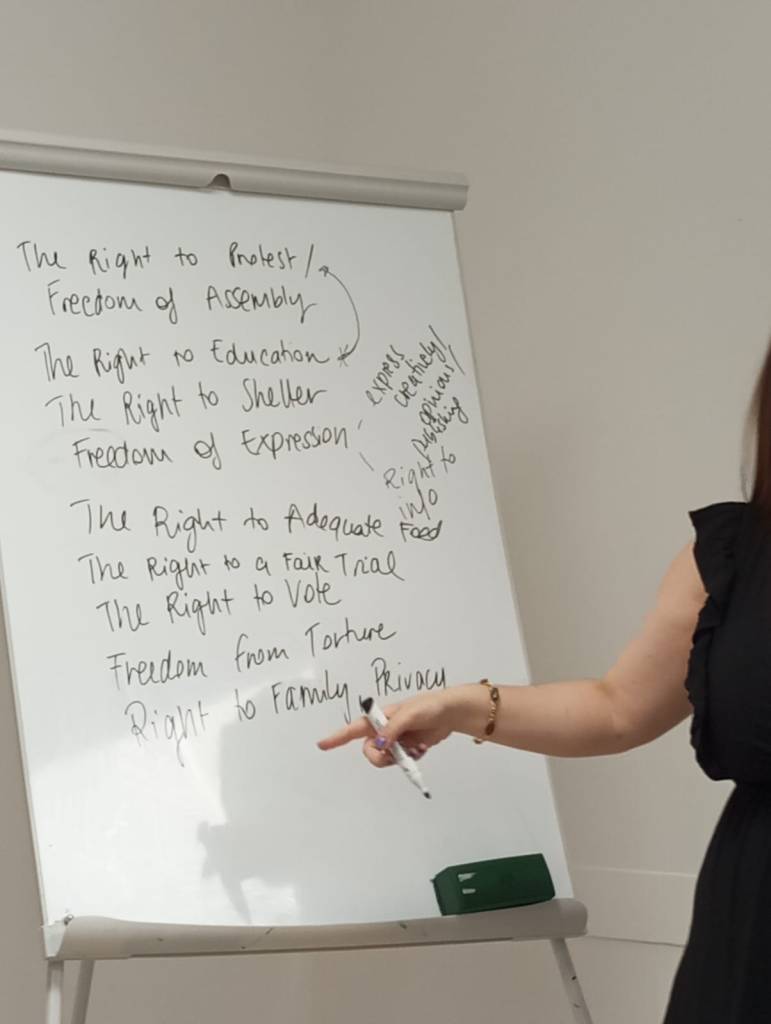 The Right to Protest/
Freedom of Assembly
The Right to Education
The Right to Shelter
Freedom of Expression
express
creatively/
opinions/
publishing
Right to
info
The Right to Adequate Food
The Right to a Fair Trial
The Right to Vote
Freedom from Torture
Right to Family, Privacy